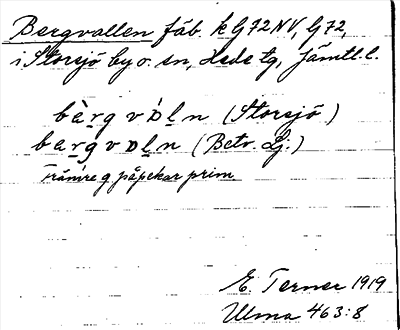 Bergvallen fäb. k G72 NV, G72,
i Storsjö by o. sn, Hede tg, Jämtl. l.
bèrg vɒ́ḷn (Storsjö)
bargvɒḷn (Betv. Lj.)
främre g påpekar prim
E. Terner 1919
Ulma 463:8